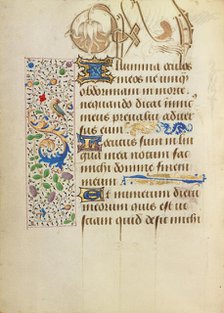 Illumina oculos
meos ne unqu
obdormiam in morte
nequando dicat inim
meus prevalui advers
sus eum
Locutus sum in lin
gua mea notum fac
michi domine finem
meum
Et numerum dierum
meorum quis est ut
sciam quid desit michi